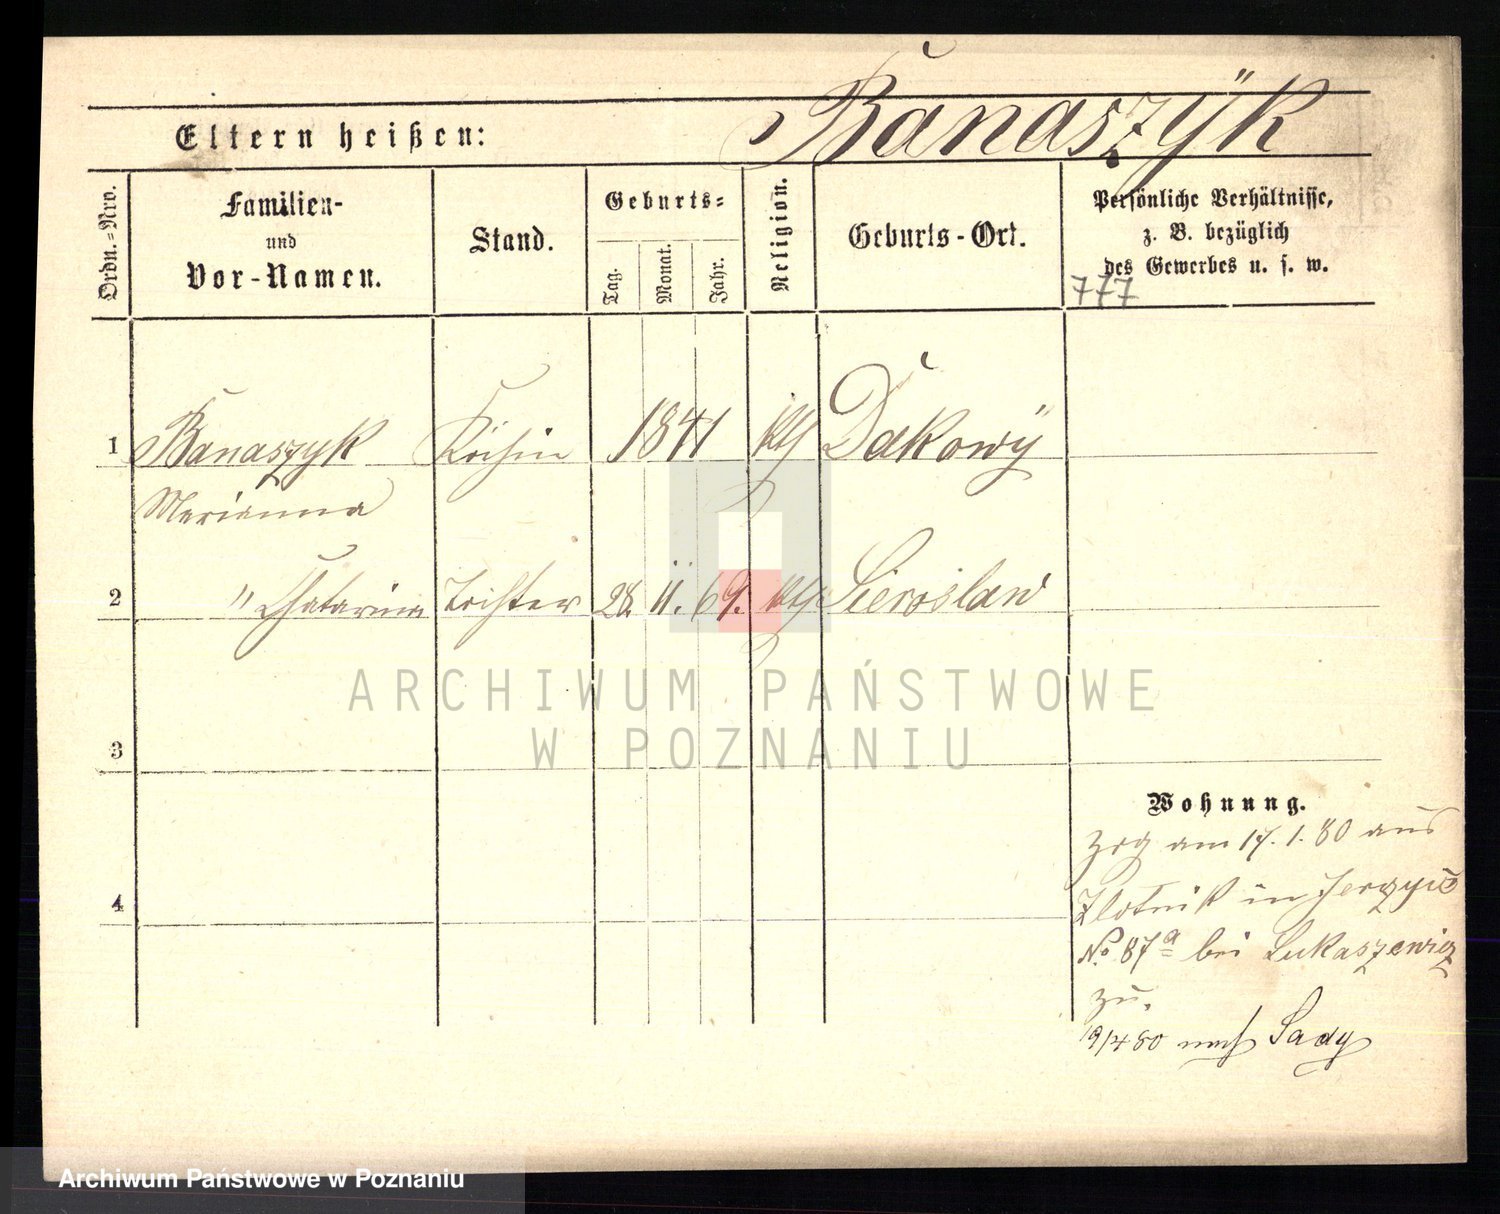 Banaszÿk
Eltern heißen:
Ordn.=Nro.
Familien-
und
Vor-Namen.
Stand.
Geburts=
Tag.
Monat.
Jahr.
Religion.
Geburts-Ort.
Persönliche Verhältnisse,
z. B. bezüglich
des Gewerbes u. s. w.
777
1 Banaszyk Köchin 1841 kth Dakowÿ
Marianna
2 " Chatarina Tochter 28. 11. 69. kth Sieroslaw
3
4
ARCHIWUM PAŃSTWOWE
W POZNANIU
Wohnung.
Zog am 17. 1. 80 aus
Zlotnik in Jerzyce
No 87a bei Lukaszewicz
zu.
19/4 80 nach Sady
Archiwum Państwowe w Poznaniu